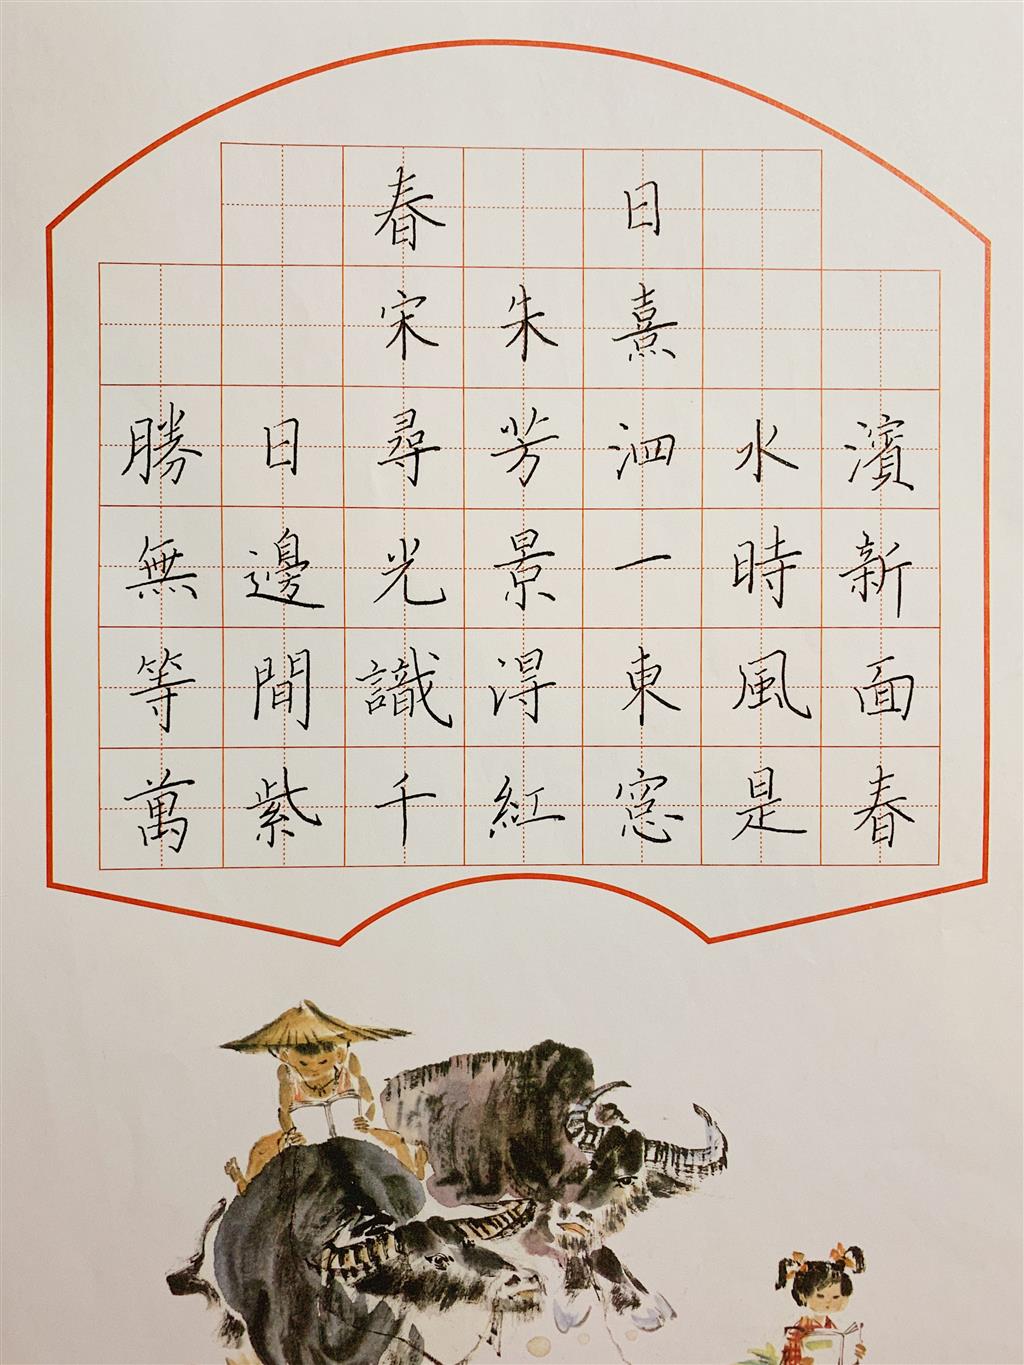 春日
宋朱熹
勝日尋芳泗水濱
無邊光景一時新
等間識得東風面
萬紫千紅窓是春